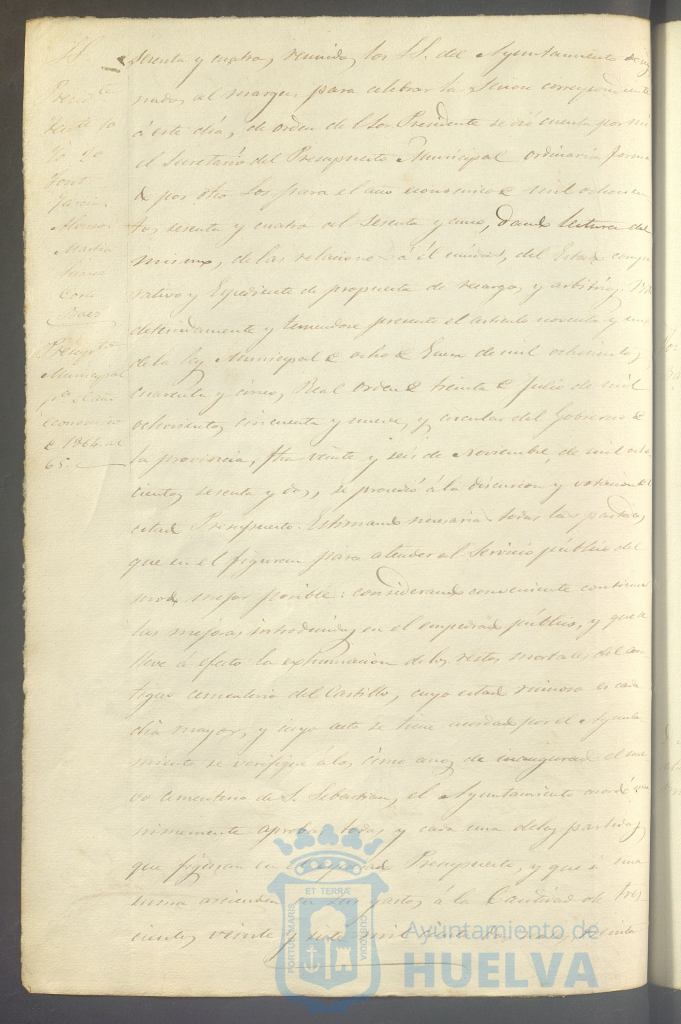 SS.
Preside
Font
García
Alonso
Martin
Garcia
Corte
Baez
Presupto
Municipal
pa el año
economico
de 1864 al
65.
sesenta y cuatro, reunidos los SS. del Ayuntamiento
nados al margen para celebrar la Sesion correspondiente
á este dia, de orden del Sor Presidente se dió cuenta por mi
el Secretario del Presupuesto Municipal ordinario forma
do por dho Sor para el año economico de mil ochocien
tos sesenta y cuatro al sesenta y cinco, dando lectura del
mismo, de las relaciones á él unidas, del Estado compa
rativo y Expediente de propuesta de recargos y arbitrios.
detenidamente y teniendose presente el articulo noventa y uno
de la ley Municipal de ocho de Enero de mil ochocientos
cuarenta y cinco, Real orden de treinta de Julio de mil
ochocientos cincuenta y nueve, y circular del Gobierno de
la provincia, fha veinte y seis de Noviembre de mil ocho
cientos sesenta y dos, se procedió á la discusion y votacion del
citado Presupuesto. Estimando necesarias todas las partidas
que en el figuran para atender al Servicio público del
modo mejor posible: considerando conveniente continuar
las mejoras introducidas en el empedrado público, y que se
lleve á efecto la exhumacion de los restos mortales del an
tiguo cementerio del Castillo, cuyo estado ruinoso es cada
dia mayor, y cuyo acto se tiene acordado por el Ayunta
miento se verifique á los cinco años de inaugurado el nue
vo cementerio de S. Sebastian, el Ayuntamiento acordó una
nimemente aprobar todas y cada una de las partidas
que figuran en el Presupuesto, y que
suma ascienden en los gastos á la Cantidad de tres
cientos veinte y siete mil
ET TERRAE
PORTUS MARIS
CUSTODIA
Ayuntamiento de
HUELVA